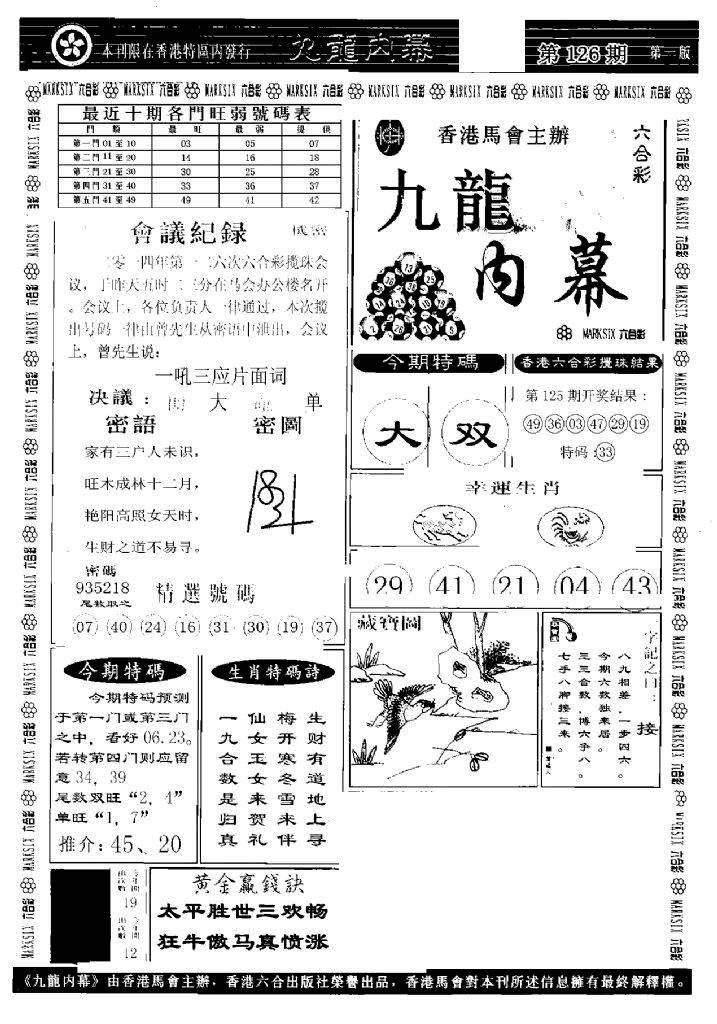 本刊限在香港特區內發行 九龍內幕 第126期 第一版
MARKSIX 六合彩
最近十期各門旺弱號碼表
門 類 最 旺 最 弱 提 供
第一門01至10 03 05 07
第二門11至20 14 16 18
第三門21至30 30 25 28
第四門31至40 33 36 37
第五門41至49 49 41 42
香港馬會主辦
六合彩
九龍
内幕
MARKSIX 六合彩
會議紀録
零一四年第一二六次六合彩攪珠会
议，于昨天五时二三分在马会办公楼名开
。会议上，各位负责人一律通过，本次攪
出号码一律由曾先生从密语中泄出，会议
上，曾先生说：
一吼三应片面词
决議： 大 单
密語 密圖
家有三户人未识，
旺木成林十二月，
艳阳高照女天时，
生财之道不易寻。
密碼
935218
尾數取之
精選號碼
07 40 24 16 31 30 19 37
今期特碼
大 双
香港六合彩攪珠結果
第125期开奖结果：
49 36 03 47 29 19
特码：33
幸運生肖
29 41 21 04 43
今期特碼
今期特码预测
于第一门或第三门
之中，看好06.23。
若转第四门则应留
意34，39
尾数双旺“2，4”
单旺“1，7”
推介：45、20
生肖特碼詩
一仙梅生
九女开财
合玉寒有
数女冬道
是来雪地
归贺来上
真礼伴寻
藏寶圖
字記之曰：接
八九相差，一步四六。
今期六数独来居。
三三合数，博六乎八。
七手八脚接三来。
19
12
黄金贏錢訣
太平胜世三欢畅
狂牛傲马真愤涨
《九龍內幕》由香港馬會主辦，香港六合出版社榮譽出品，香港馬會對本刊所述信息擁有最終解釋權。